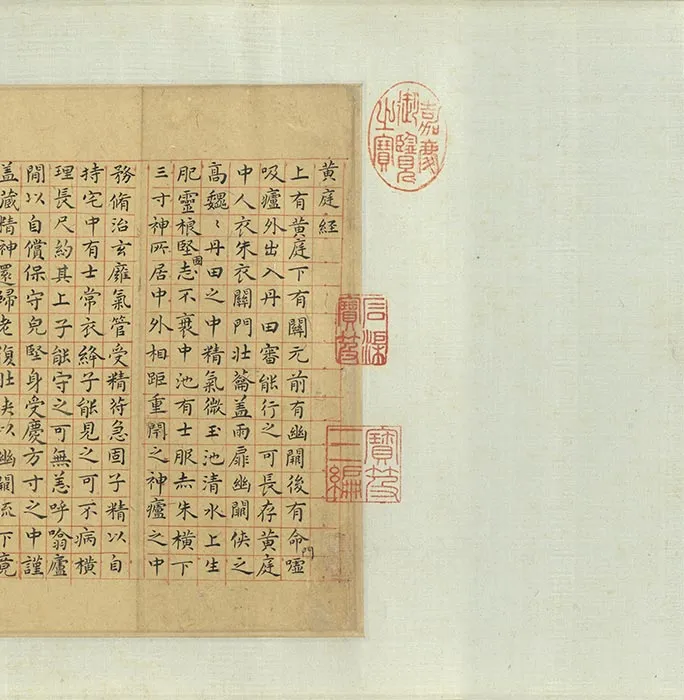 嘉慶御覽之寶
石渠寶笈
寶笈三編
黃庭經
上有黃庭下有關元前有幽闕後有命門噓
吸廬外出入丹田審能行之可長存黃庭
中人衣朱衣關門壯籥盖兩扉幽闕俠之
高魏〻丹田之中精氣微玉池清水上生
肥靈根堅固志不衰中池有士服赤朱橫下
三寸神所居中外相距重閇之神廬之中
務脩治玄廱氣管受精符急固子精以自
持宅中有士常衣絳子能見之可不病橫
理長尺約其上子能守之可無恙呼噏廬
閒以自償保守皃堅身受慶方寸之中謹
盖藏精神還歸老復壯俠以幽闕流下竟